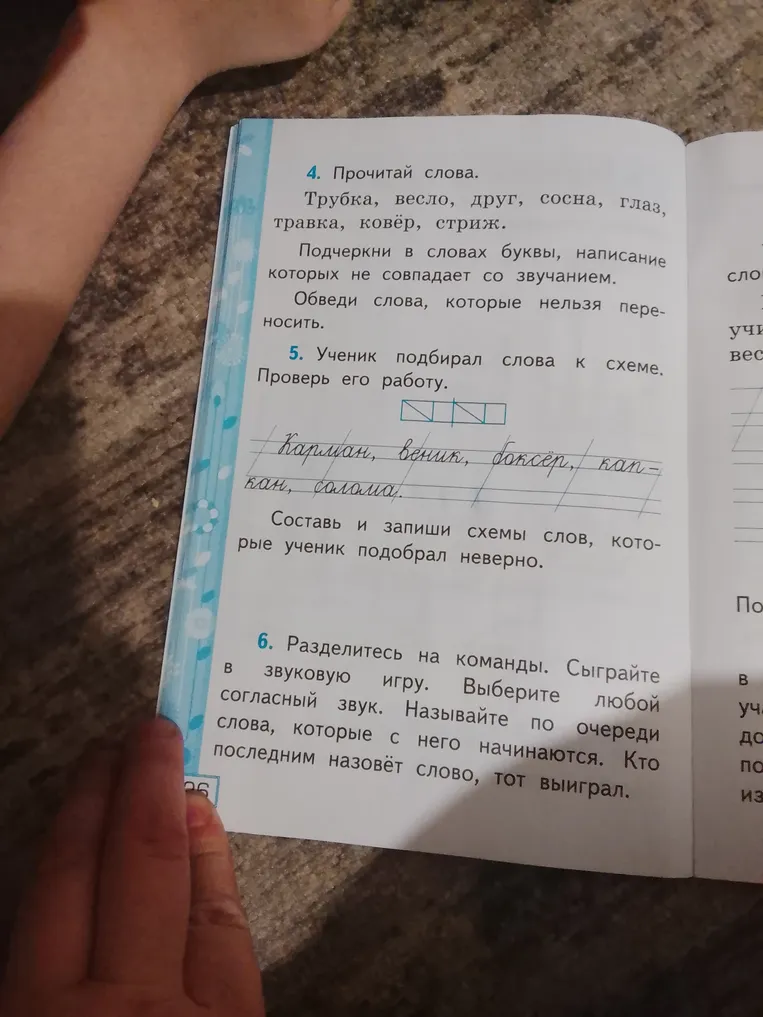 4. Прочитай слова.
Трубка, весло, друг, сосна, глаз,
травка, ковёр, стриж.
Подчеркни в словах буквы, написание
которых не совпадает со звучанием.
Обведи слова, которые нельзя пере-
носить.
5. Ученик подбирал слова к схеме.
Проверь его работу.
Карман, веник, боксёр, кап-
кан, солома.
Составь и запиши схемы слов, кото-
рые ученик подобрал неверно.
6. Разделитесь на команды. Сыграйте
в звуковую игру. Выберите любой
согласный звук. Называйте по очереди
слова, которые с него начинаются. Кто
последним назовёт слово, тот выиграл.
сло
учи
вес
По
в
уча
до
по
из